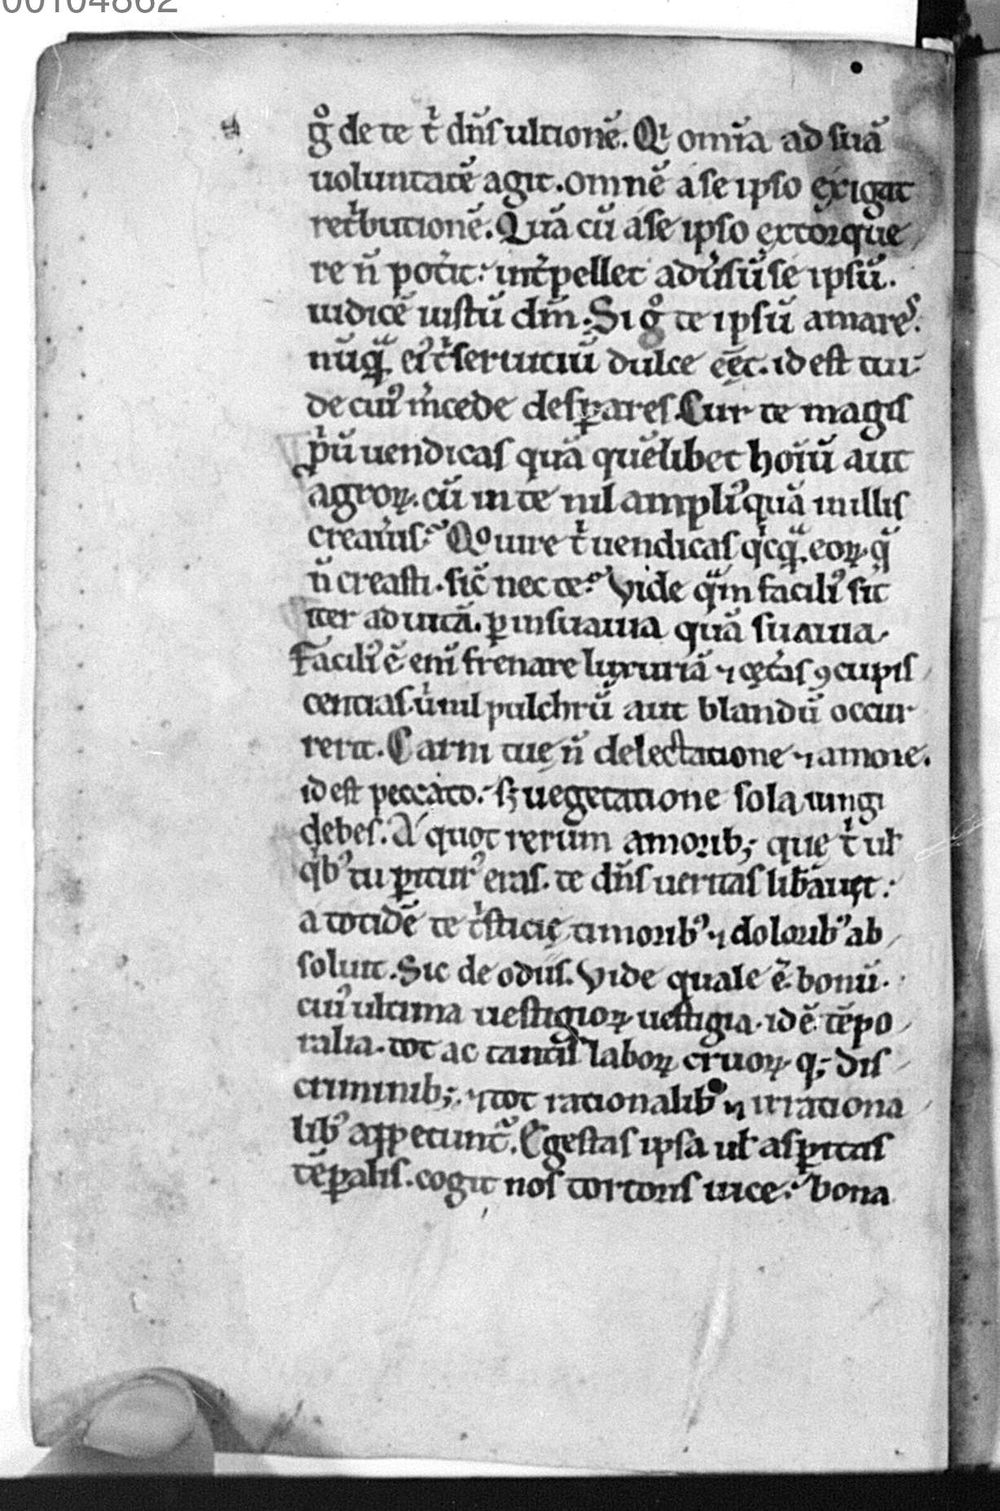 00104862
g̊ de te t̉ dn̄s ultionē. Qi omīa ad suā
uoluntatē agit. omnē a se ipso exigat
ret̉butionē. Quā cū a se ipso extorque
re n̄ pot̉it: int̉pellet adu̓sū se ipsū.
iudicē iustū dm̄. Si g̊ te ipsū amares.
nūqͣ ei᾽ t̉ seruitiū dulce eēt. id est cui᾽
de cui᾽ m̉cede desꝑares. Cur te magis
p̉ū uendicas quā quēlibet hoīū aut
agroꝝ. cū in te nil ampli᾽ quā in illis
creau̓is? Qo iure t̉ uendicas qͥcqͣ eoꝝ. qͣ
n̄ creasti. sic̄ nec te? Vide qͣm facili᾽ sit
iter ad uitā. ꝑ insuauia quā suauia.
Facili᾽ ē eni᾽ frenare luxuriā ⁊ cet̉as ꝯcupis
centias. u̓ nil pulchrū aut blandū occur
rerit. Carni tue n̄ delectatione ⁊ amore.
id est peccato. sꝫ uegetatione sola iungi
debes. A quot rerum amorib; que t̉ ul̄
qͥb᾽ tu ꝑitur᾽ eras. te dn̄s ueritas lib̉auit:
a totidē te t̉sticie timorib᾽ ⁊ dolorib᾽ ab
soluit. Sic de odiis. Vide quale ē bonū.
cui᾽ ultima uestigioꝝ uestigia. id ē tēpo
ralia. tot ac tantis laboꝝ cruoꝝ q; dis
criminib;. ⁊ tot rationalib᾽ ⁊ irrationa
lib᾽ appetunt᾽. Egestas ipsa ul̄ aspi̓tas
tēꝑalis. cogit nos tortoris uice: bona